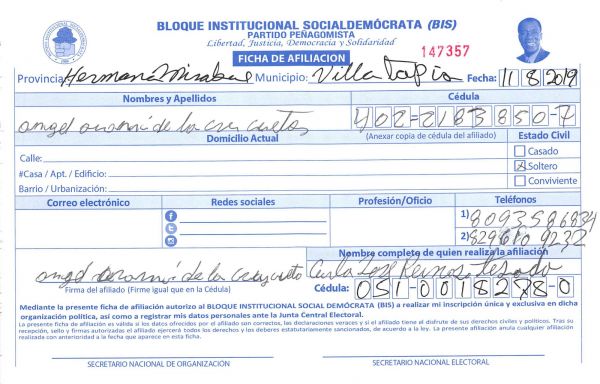 BLOQUE INSTITUCIONAL SOCIALDEMÓCRATA (BIS)
PARTIDO PEÑAGOMISTA
Libertad, Justicia, Democracia y Solidaridad
FICHA DE AFILIACION
147357
Provincia Hermana Mirabal Municipio: Villa Tapia Fecha: 11 8 2019
Nombres y Apellidos
Cédula
angel de la cruz 402-2183850-7
Domicilio Actual
(Anexar copia de cédula del afiliado)
Estado Civil
Calle:
Casado
#Casa / Apt. / Edificio:
X Soltero
Barrio / Urbanización:
Conviviente
Correo electrónico
Redes sociales
Profesión/Oficio
Teléfonos
1) 8093586834
2) 829 9232
Nombre completo de quien realiza la afiliación
angel de la cruz
Carla
Firma del afiliado (Firme igual que en la Cédula)
Cédula: 051-0018278-0
Mediante la presente ficha de afiliación autorizo al BLOQUE INSTITUCIONAL SOCIAL DEMÓCRATA (BIS) a realizar mi inscripción única y exclusiva en dicha
organización política, así como a registrar mis datos personales ante la Junta Central Electoral.
La presente ficha de afiliación es válida si los datos ofrecidos por el afiliado son correctos, las declaraciones veraces y si el afiliado tiene al disfrute de sus derechos civiles y políticos. Tras su
recepción, sello y firmas autorizadas el afiliado ejercerá todos los derechos y los deberes estatutariamente sancionados, de acuerdo a la ley. La presente afiliación anula cualquier afiliación
realizada con anterioridad a la fecha que aparece en esta ficha.
SECRETARIO NACIONAL DE ORGANIZACIÓN
SECRETARIO NACIONAL ELECTORAL